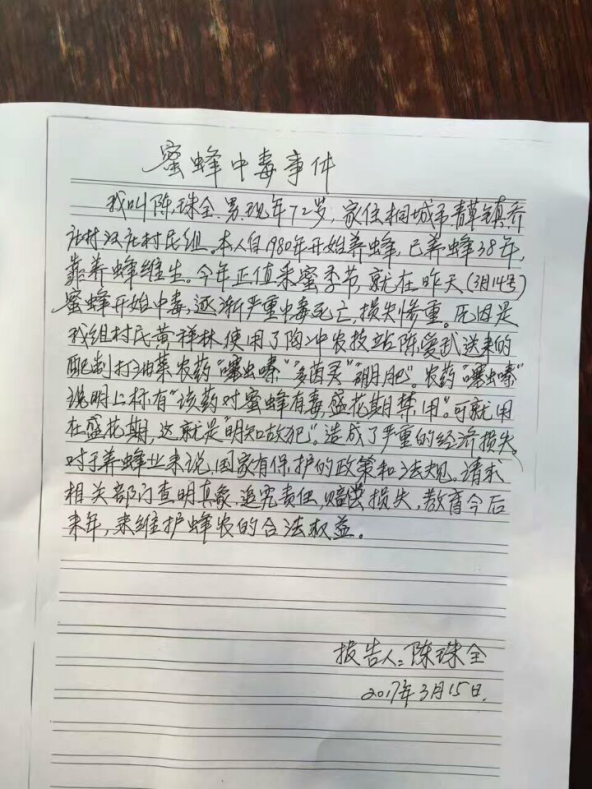 蜜蜂中毒事件
我叫陈珠全,男,现年72岁,家住桐城市青草镇乔
庄村汉庄村民组。本人自1980年开始养蜂,已养蜂38年,
靠养蜂维生。今年正值采蜜季节,就在昨天(3月14号)
蜜蜂开始中毒,逐渐严重中毒死亡,损失惨重。原因是
我组村民黄祥林使用了陶冲农技站陈爱武送来的
配制打油菜农药“噻虫嗪”“多菌灵”“硼肥”。农药“噻虫嗪”
说明上标有“该药对蜜蜂有毒盛花期禁用”。可就用
在盛花期,这就是“明知故犯”。造成了严重的经济损失。
对于养蜂业来说,国家有保护的政策和法规。请求
相关部门查明真象,追究责任,赔偿损失,教育今后
来年,来维护蜂农的合法权益。
报告人:陈珠全
2017年3月15日.